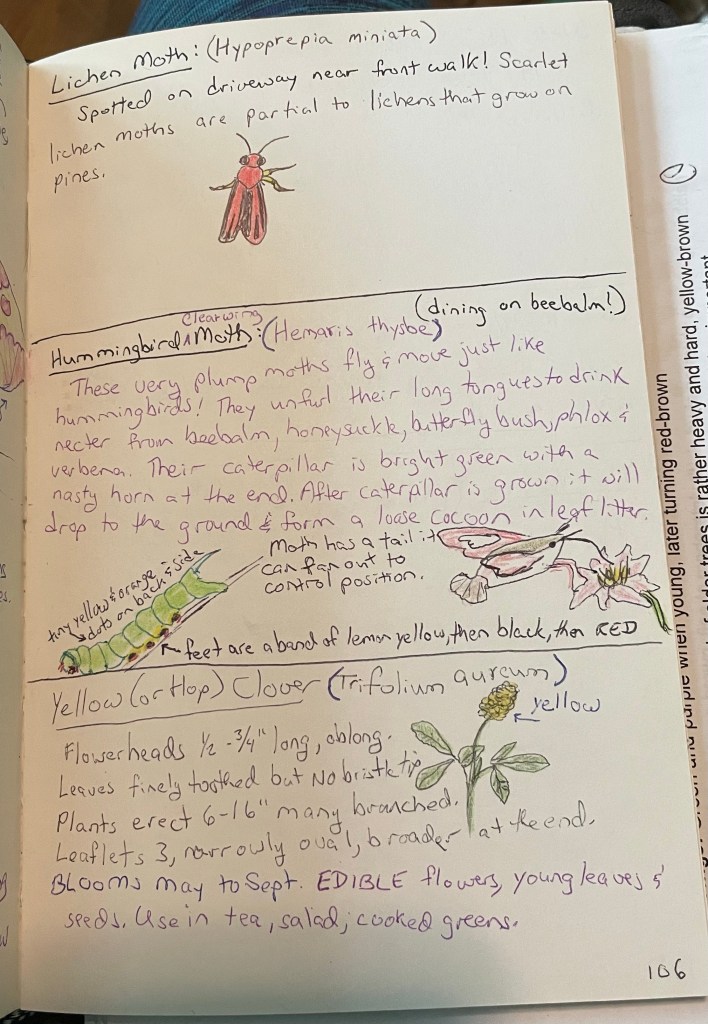 Lichen Moth: (Hypoprepia miniata)
Spotted on driveway near front walk! Scarlet
lichen moths are partial to lichens that grow on
pines.
(dining on beebalm!)
Clearwing
Hummingbird ^ Moth: (Hemaris thysbe)
These very plump moths fly & move just like
hummingbirds! They unfurl their long tongues to drink
necter from beebalm, honeysuckle, butterfly bush, phlox &
verbena. Their caterpillar is bright green with a
nasty horn at the end. After caterpillar is grown it will
drop to the ground & form a loose cocoon in leaf litter.
Moth has a tail it
can fan out to
control position.
tiny yellow & orange
dots on back & side
feet are a band of lemon yellow, then black, then RED
Yellow (or Hop) Clover (Trifolium aureum)
yellow
Flowerheads ½ - ¾" long, oblong.
Leaves finely toothed but No bristle tip
Plants erect 6-16" many branched.
Leaflets 3, narrowly oval, broader at the end.
BLOOMS may to Sept. EDIBLE flowers, young leaves &
seeds. Use in tea, salad, cooked greens.
106
when young, later turning red-brown
older trees is rather heavy and hard, yellow-brown